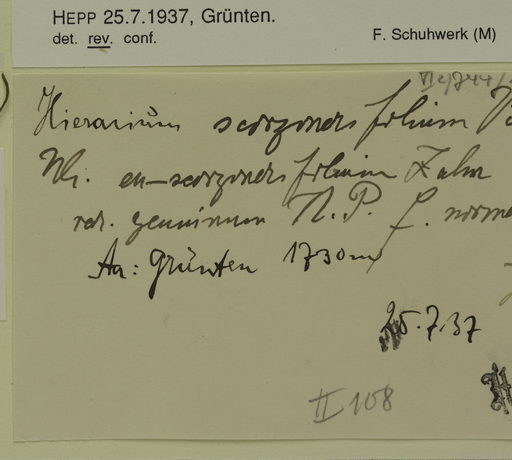 HEPP 25.7.1937, Grünten.
det. rev. conf.
F. Schuhwerk (M)
Hieracium scorzonerifolium
eu-scorzonerifolium Zahn
var. genuinum N. P. f.
Aa: Grünten 1730m
25.7.37
II 108